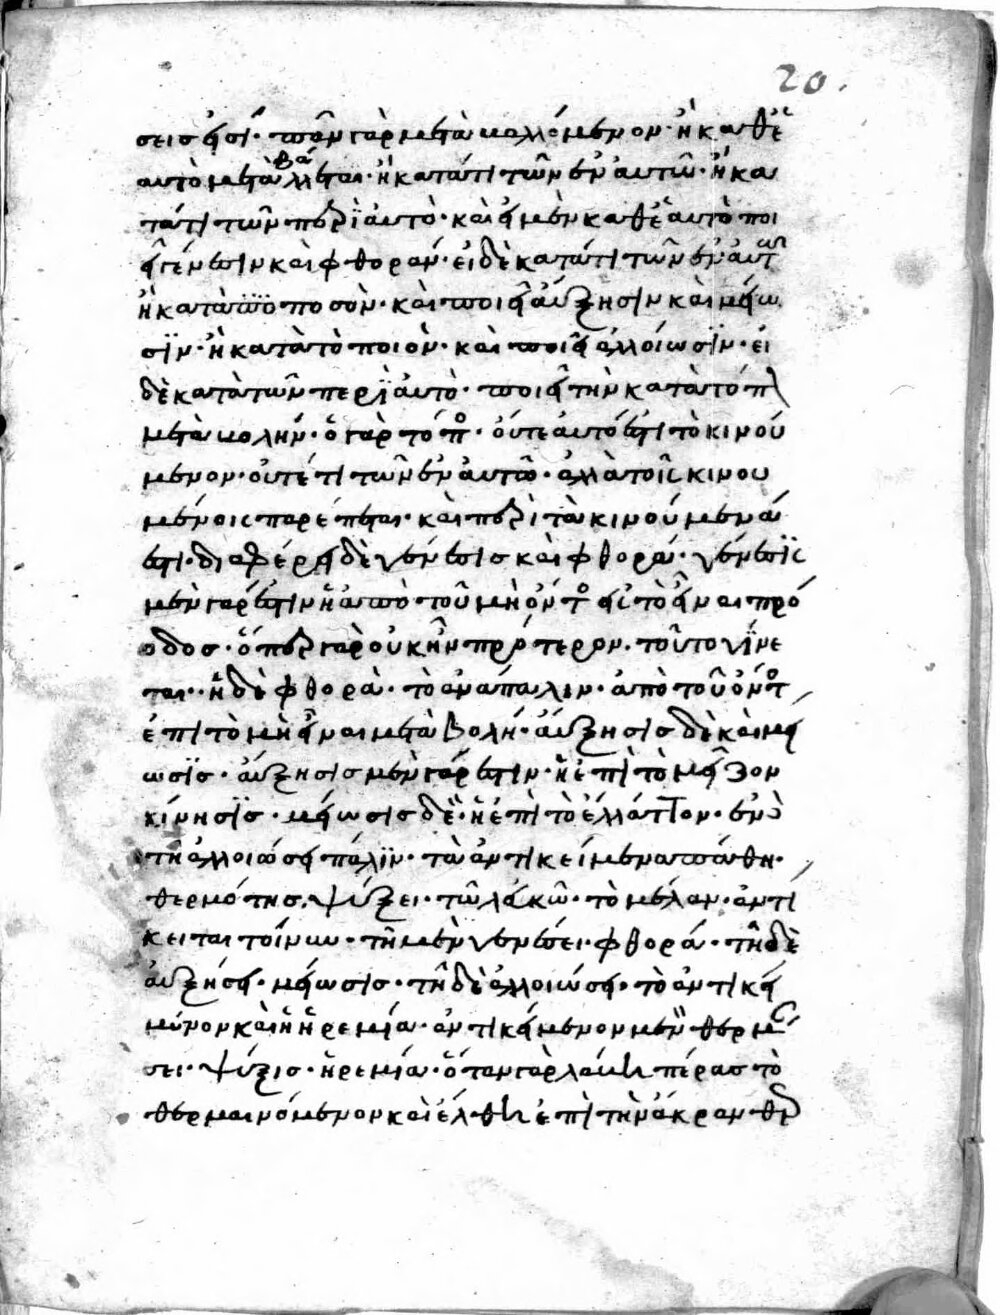 20.
σεισ εἰσί· πᾶν γὰρ μεταβαλλόμενον· ἢ καθ' ἑ
αυτὸ μεταβάλλεται· ἢ κατάτι τῶν ἐν αυτῶ· ἢ κα
τάτι τῶν περὶ αὐτὸ· καὶ εἰ μὲν καθ' ἑαυτὸ ποι
εῖ γένεσιν καὶ φθοράν· εἰ δὲ κατάτι τῶν ἐν αὐτῶ
ἢ κατὰ τὸ ποσὸν· καὶ ποιεῖ αὔξησιν καὶ μείω
σϊν· ἢ κατὰ τὸ ποιὸν· καὶ ποιεῖ ἀλλοίωσϊν· εἰ
δὲ κατὰ τῶν περὶ αὐτὸ· ποιεῖ τὴν κατὰ τόπ
μεταβολήν· ὁ γὰρ τόπο· οὔτε αυτό ἐστι τὸ κινού
μενον· οὐτέ τι τῶν ἐν αὐτῶ· ἀλλὰ τοῖς κινου
μένοις παρέπεται· καὶ περὶ τὰ κινούμενά
ἐστι· διαφέρει δὲ γένεσισ καὶ φθορά· γένεσϊς
μὲν γάρ ἐστιν ἡ ἀπὸ τοῦ μὴ ὄντο εἰς τὸ εἶναι πρό
οδοσ· ὅπερ γὰρ οὐκ ἦν πρότερον· τοῦτο γίνε
ται· ἡ δὲ φθορὰ· τὸ ἀνάπαλιν· ἀπὸ τοῦ ὄντο
ἐπὶ τὸ μὴ εἶναι μεταβολή· αὔξησισ δὲ καὶ μεί
ωσϊσ· αὔξησισ μὲν γάρ ἐστιν· ἡ ἐπὶ τὸ μεῖζον
κίνησϊσ· μείωσισ δὲ· ἡ ἐπὶ τὸ ἐλλάττον· ἐν δὲ
τῆ ἀλλοιώσει πάλϊν· τὰ ἀντικείμενα πάθη·
θερμότησ· ψύξει· τῶ λευκῶ· τὸ μέλαν· ἀντί
κειται τοίνυν· τῆ μὲν γενέσει· φθορά· τῆ δὲ
αὐξήσει· μείωσισ· τῆ δὲ ἀλλοιώσει· τὸ ἀντικεί
μενον καὶ ἡ ἠρεμία· ἀντικείμενον μὲν θερμάν
σει· ψύξισ· ἠρεμία· ὅταν γὰρ λάβη πέρασ τὸ
θερμαινόμενον καὶ ἔλθη ἐπὶ τὴν ἄκραν θερ